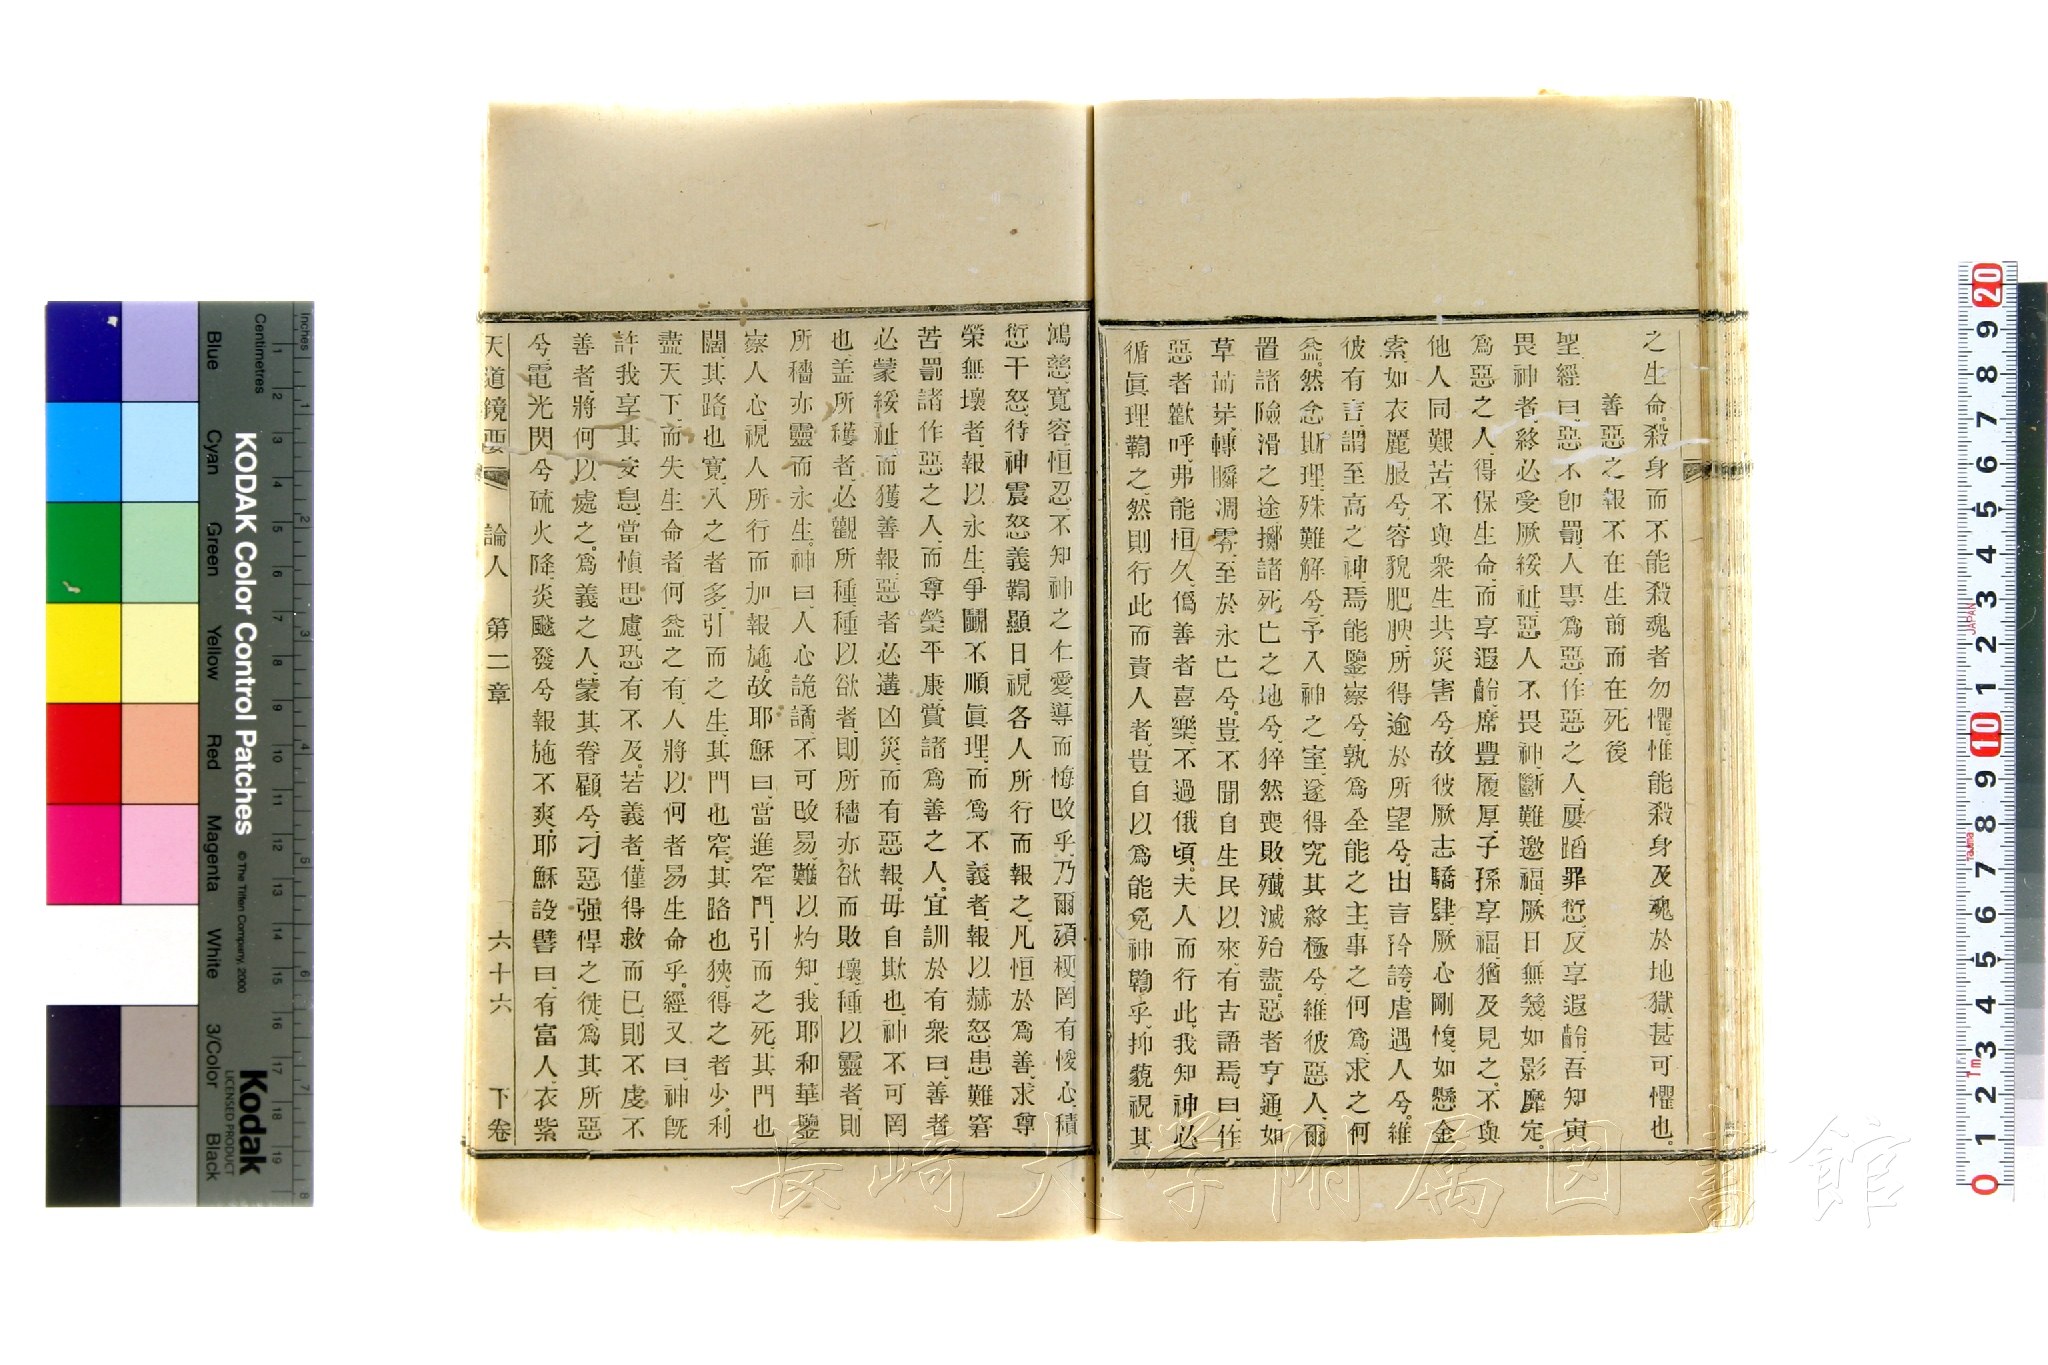 之生命、殺身而不能殺魂者勿懼、惟能殺身及魂於地獄、甚可懼也。
善惡之報不在生前而在死後
聖經曰、惡不卽罰、人專爲惡、作惡之人、屢蹈罪愆、反享遐齡、吾知寅
畏神者、終必受厥綏祉、惡人不畏神、斷難邀福、厥日無幾、如影靡定。
爲惡之人、得保生命、而享遐齡、席豐履厚、子孫享福、猶及見之、不與
他人同艱苦、不與衆生共災害兮、故彼厥志驕肆、厥心剛愎、如懸金
索、如衣麗服兮、容貌肥腴、所得逾於所望兮、出言矜誇、虐遇人兮。維
彼有言、謂至高之神、焉能鑒察兮、孰爲全能之主、事之何爲、求之何
益。然念斯理、殊難解兮、予入神之室、遂得究其終極兮、維彼惡人、爾
置諸險滑之途、擲諸死亡之地兮、猝然喪敗、殲滅殆盡。惡者亨通、如
草萌芽、轉瞬凋零、至於永亡兮。豈不聞自生民以來、有古語焉、曰、作
惡者歡呼、弗能恒久、僞善者喜樂、不過俄頃。夫人而行此、我知神必
循眞理鞫之、然則行此而責人者、豈自以爲能免神鞫乎、抑藐視其
鴻慈、寬容、恒忍、不知神之仁愛、導而悔改乎、乃爾頑梗、罔有悛心、積
愆干怒、待神震怒義鞫顯日、視各人所行而報之、凡恒於爲善、求尊
榮無壞者、報以永生、爭鬬不順眞理、而爲不義者、報以赫怒、患難窘
苦、罰諸作惡之人、而尊榮平康、賞諸爲善之人。宜訓於有衆曰、善者
必蒙綏祉、而獲善報、惡者必遘凶災、而有惡報。毋自欺也、神不可罔
也、盖所種者、必觀所種、種以欲者、則所穡亦欲而敗壞、種以靈者、則
所穡亦靈而永生。神曰、人心詭譎、不可改易、難以灼知、我耶和華鑒
察人心、視人所行而加報施。故耶穌曰、當進窄門、引而之死、其門也
闊、其路也寬、入之者多、引而之生、其門也窄、其路也狹、得之者少。利
盡天下、而失生命者何益之有、人將以何者易生命乎。經又曰、神旣
許我享其安息、當愼思慮、恐有不及、若義者、僅得救而已、則不虔不
善者、將何以處之。爲義之人、蒙其眷顧兮、刁惡强悍之徒、爲其所惡
兮、電光閃兮、硫火降、炎飈發兮、報施不爽、耶穌設譬曰、有富人、衣紫
天道鏡要　論人　第二章　六十六　下卷
KODAK Color Control Patches
© The Tiffen Company, 2000
Kodak
LICENSED PRODUCT
Inches
Centimetres
Blue
Cyan
Green
Yellow
Red
Magenta
White
3/Color
Black
長崎大学附属図書館